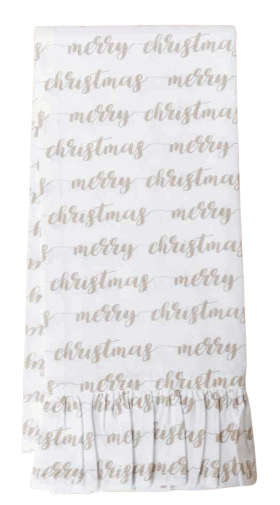 merry christmas
christmas merry
merry christmas
christmas merry
merry christmas
christmas merry
merry christmas
christmas merry
merry christmas
christmas merry
merry christmas